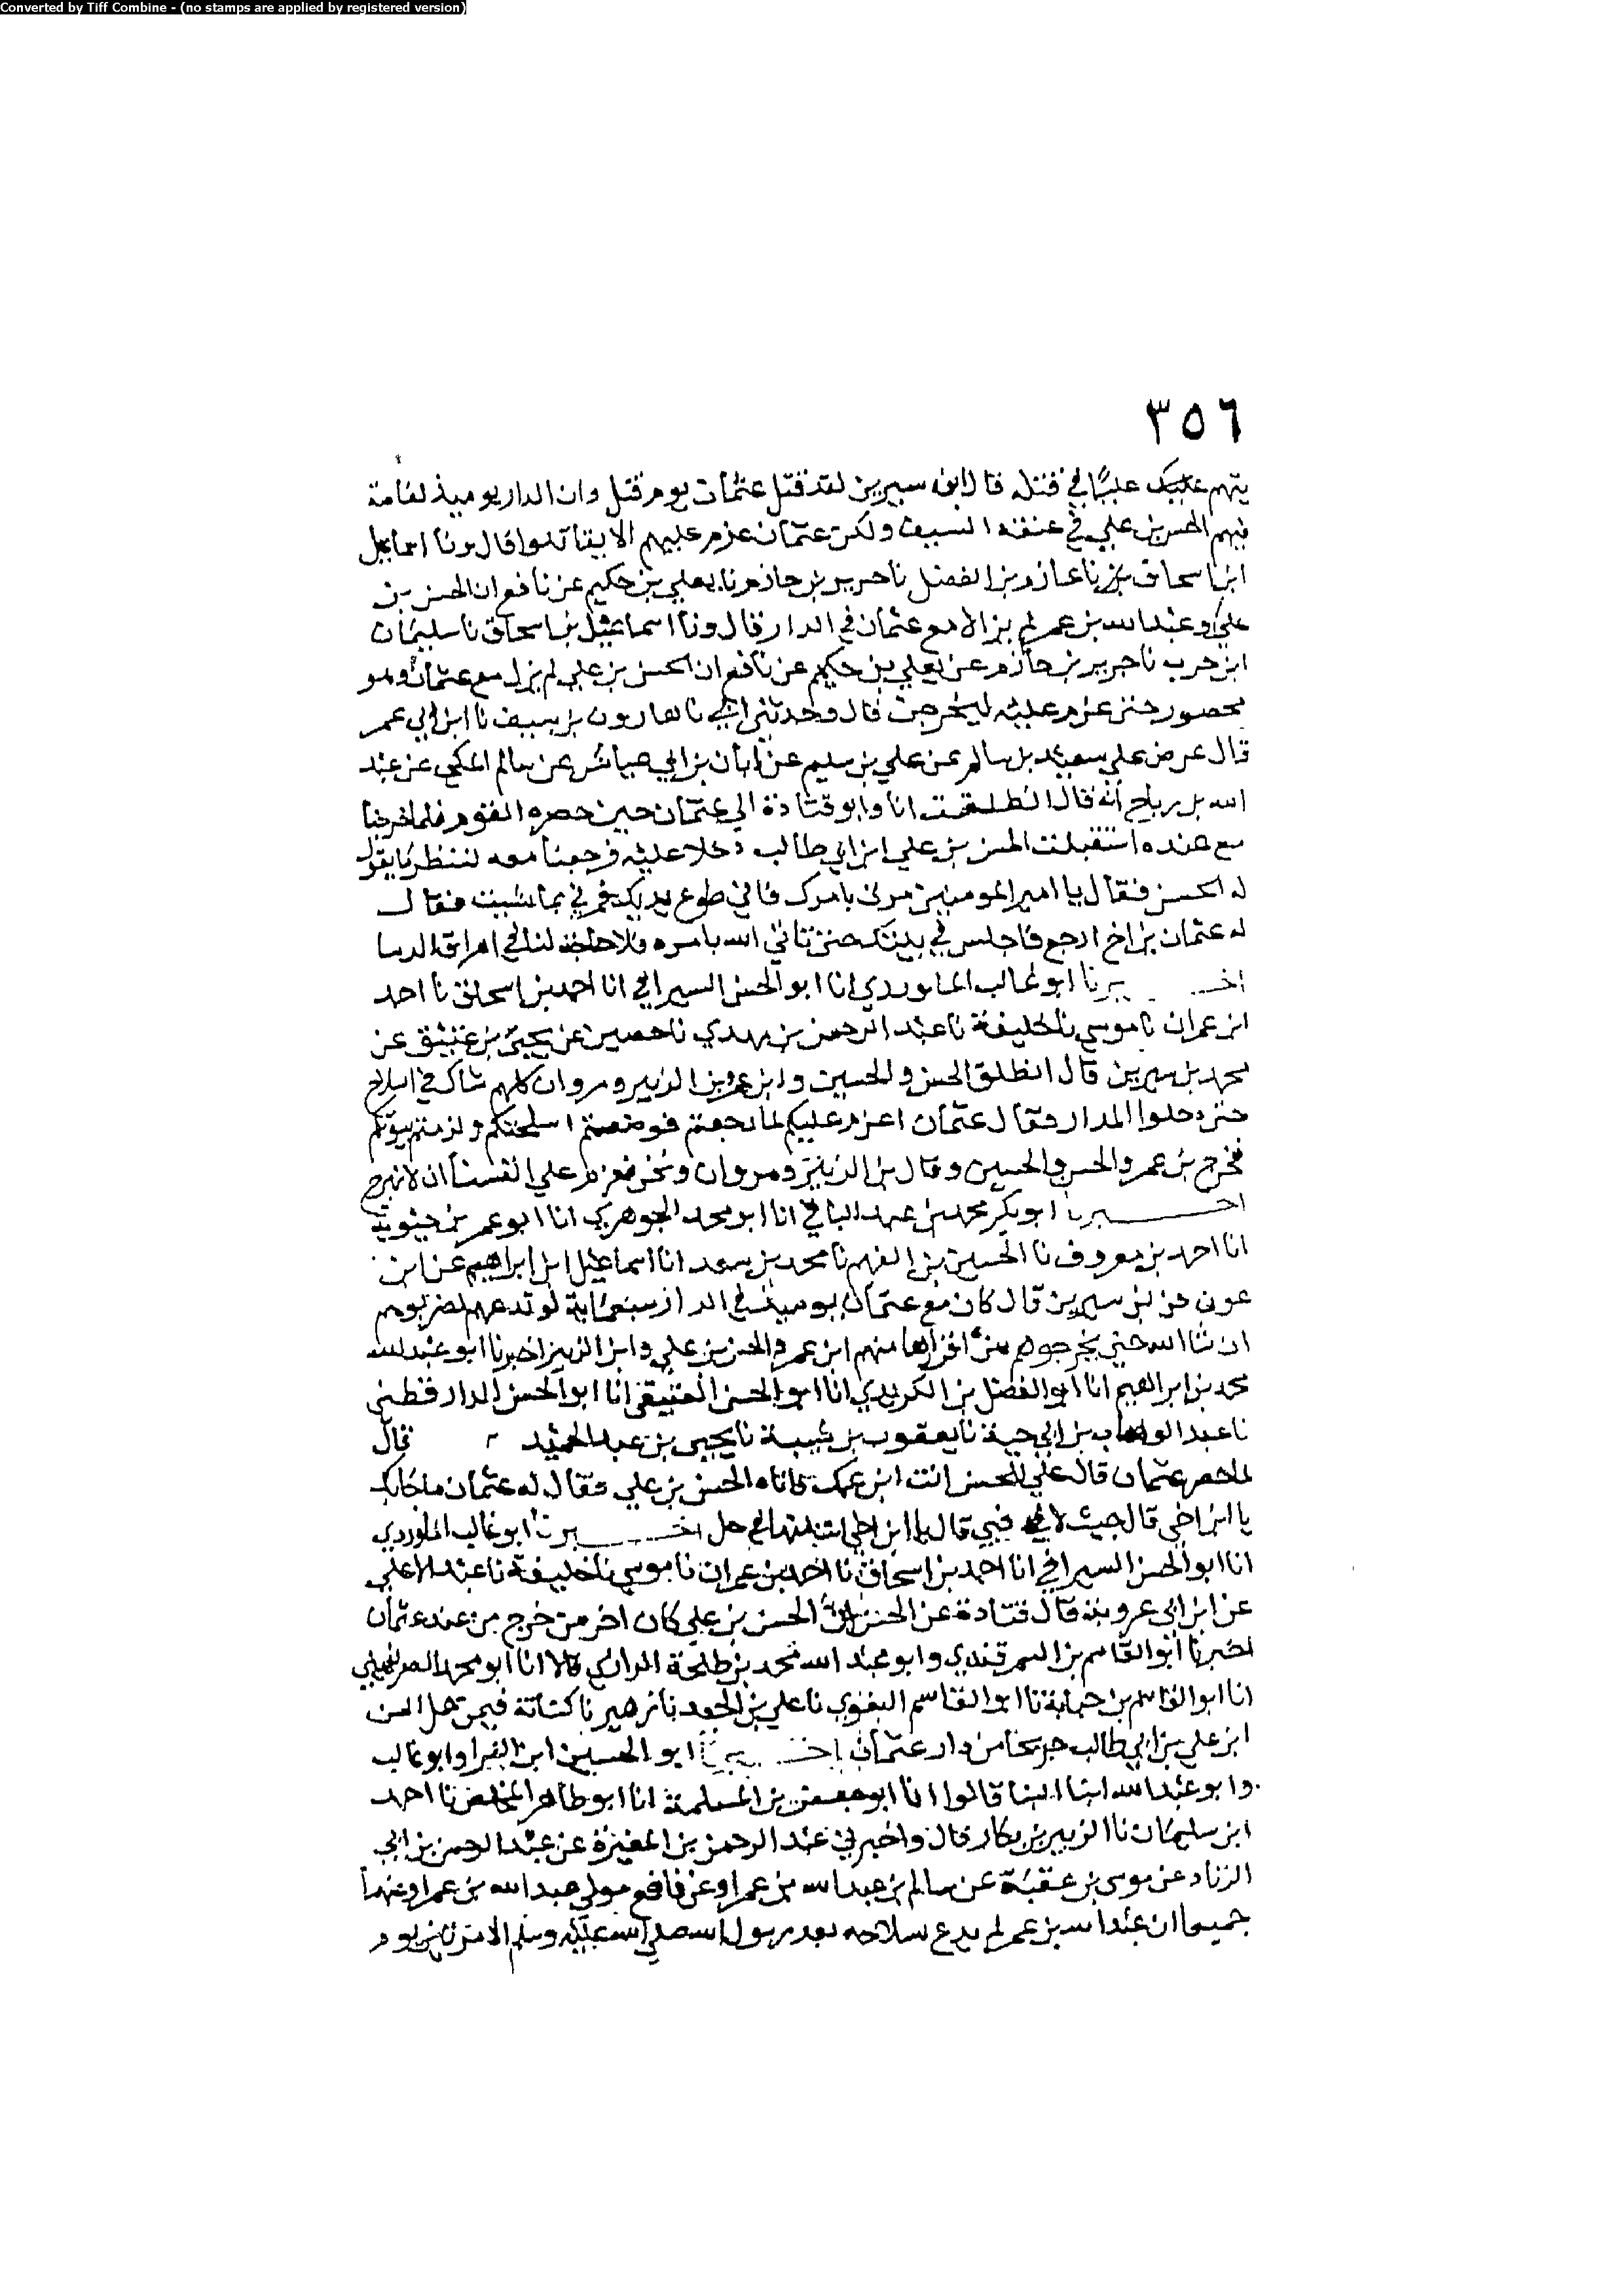 Converted by Tiff Combine - (no stamps are applied by registered version)
٣٥٦
يتهم عليا في قتله قال ابن سيرين لقد قتل عثمان يوم قتل وان الدار يوميذ لغامة
فيهم الحسن بن علي في عنقه السيف ولكن عثمان عزم عليهم الا يقاتلوا قال ونا اسماعيل
ابن اسحاق نا عازم بن الفضل نا جرير بن حازم نا يعلي بن حكيم عن نافع ان الحسن بن
علي وعبد الله بن عمر لم يزالا مع عثمان في الدار قال ونا اسماعيل بن اسحاق نا سليمان
ابن حرب نا جرير بن حازم عن يعلي بن حكيم عن نافع ان الحسن بن علي لم يزل مع عثمان وهو
محصور حتى عزم عليه ليخرجن قال وحدثني ابي نا هارون بن يوسف نا ابن ابي عمر
قال عرض علي سعيد بن سالم عن علي بن سليم عن ابان بن ابي عياش عن سالم المكي عن عبد
الله بن رباح انه قال انطلقت انا وابو قتادة الي عثمان حين حصره القوم فلما خرجنا
من عنده استقبلنا الحسن بن علي ابن ابي طالب دخلا عليه فرجعنا معه لننظر ما يقول
له الحسن فقال يا امير المومنين مرني بامرك فاني طوع يديك فمرني بما شيت فقال
له عثمان بن اخ ارجع فاجلس في بيتك حتى ياتي الله بامره فلا حاجة لنا في اهراق الدما
اخـــبرنا ابو غالب الماوردي انا ابو الحسن السيرافي انا احمد بن اسحاق نا احمد
ابن عمران نا موسي نا خليفة نا عبد الرحمن بن مهدي نا حصين عن يحيى بن عتيق عن
محمد بن سيرين قال انطلق الحسن والحسين وابن عمر وابن الزبير ومروان كلهم شاك في السلاح
حتى دخلوا الدار فقال عثمان اعزم عليكم لما رجعتم فوضعتم اسلحتكم ولزمتم بيوتكم
فخرج بن عمر والحسن والحسين وقال بن الزبير ومروان ونحن نعزم علي انفسنا ان لا نبرح
اخـــبرنا ابو بكر محمد بن عبد الباقي انا ابو محمد الجوهري انا ابو عمر بن حيويه
انا احمد بن معروف نا الحسين بن الفهم نا محمد بن سعد انا اسماعيل ابن ابراهيم عن ابن
عون عن بن سيرين قال كان مع عثمان يوميذ في الدار سبعماية لو تدعهم لضربوهم
ان شا الله حتى يخرجوهم من اقطارها منهم ابن عمر والحسن بن علي وابن الزبير اخبرنا ابو عبد الله
محمد بن ابراهيم انا ابو الفضل بن الكريدي انا ابو الحسن العتيقي انا ابو الحسن الدارقطني
نا عبد الوهاب بن ابي حية نا يعقوب بن شيبة نا يحيى بن عبد الحميد قال
لما حصر عثمان قال علي للحسن ائت ابن عمك فاتاه الحسن بن علي فقال له عثمان ما جابك
يا ابن اخي قال جيت قال يا ابن اخي حل اخـــبرنا ابو غالب الماوردي
انا ابو الحسن السيرافي انا احمد بن اسحاق نا احمد بن عمران نا موسي نا خليفة نا عبد الاعلي
عن ابن ابي عروبة قال قتادة عن الحسن ان الحسن بن علي كان اخر من خرج من عند عثمان
اخبرنا ابو القاسم بن السمرقندي وابو عبد الله محمد بن طلحة الرازي قالا انا ابو محمد الصريفيني
انا ابو القاسم بن حبابة نا ابو القاسم البغوي نا علي بن الجعد نا زهير نا كنانة فيمن حمل الحسن
ابن علي بن ابي طالب جريحا من دار عثمان اخـــبرنا ابو الحسين ابن الفرا وابو غالب
وابو عبد الله ابنا البنا قالوا انا ابو جعفر بن المسلمة انا ابو طاهر المخلص نا احمد
ابن سليمان نا الزبير بن بكار قال واخبرني عبد الرحمن بن المغيرة عن عبد الرحمن بن ابي
الزناد عن موسى بن عقبة عن سالم بن عبد الله بن عمر او عن نافع مولي عبد الله بن عمر او عنهما
جميعا ان عبد الله بن عمر لم يدع سلاحه بعد رسول الله صلي الله عليه وسلم الا مرتين يوم